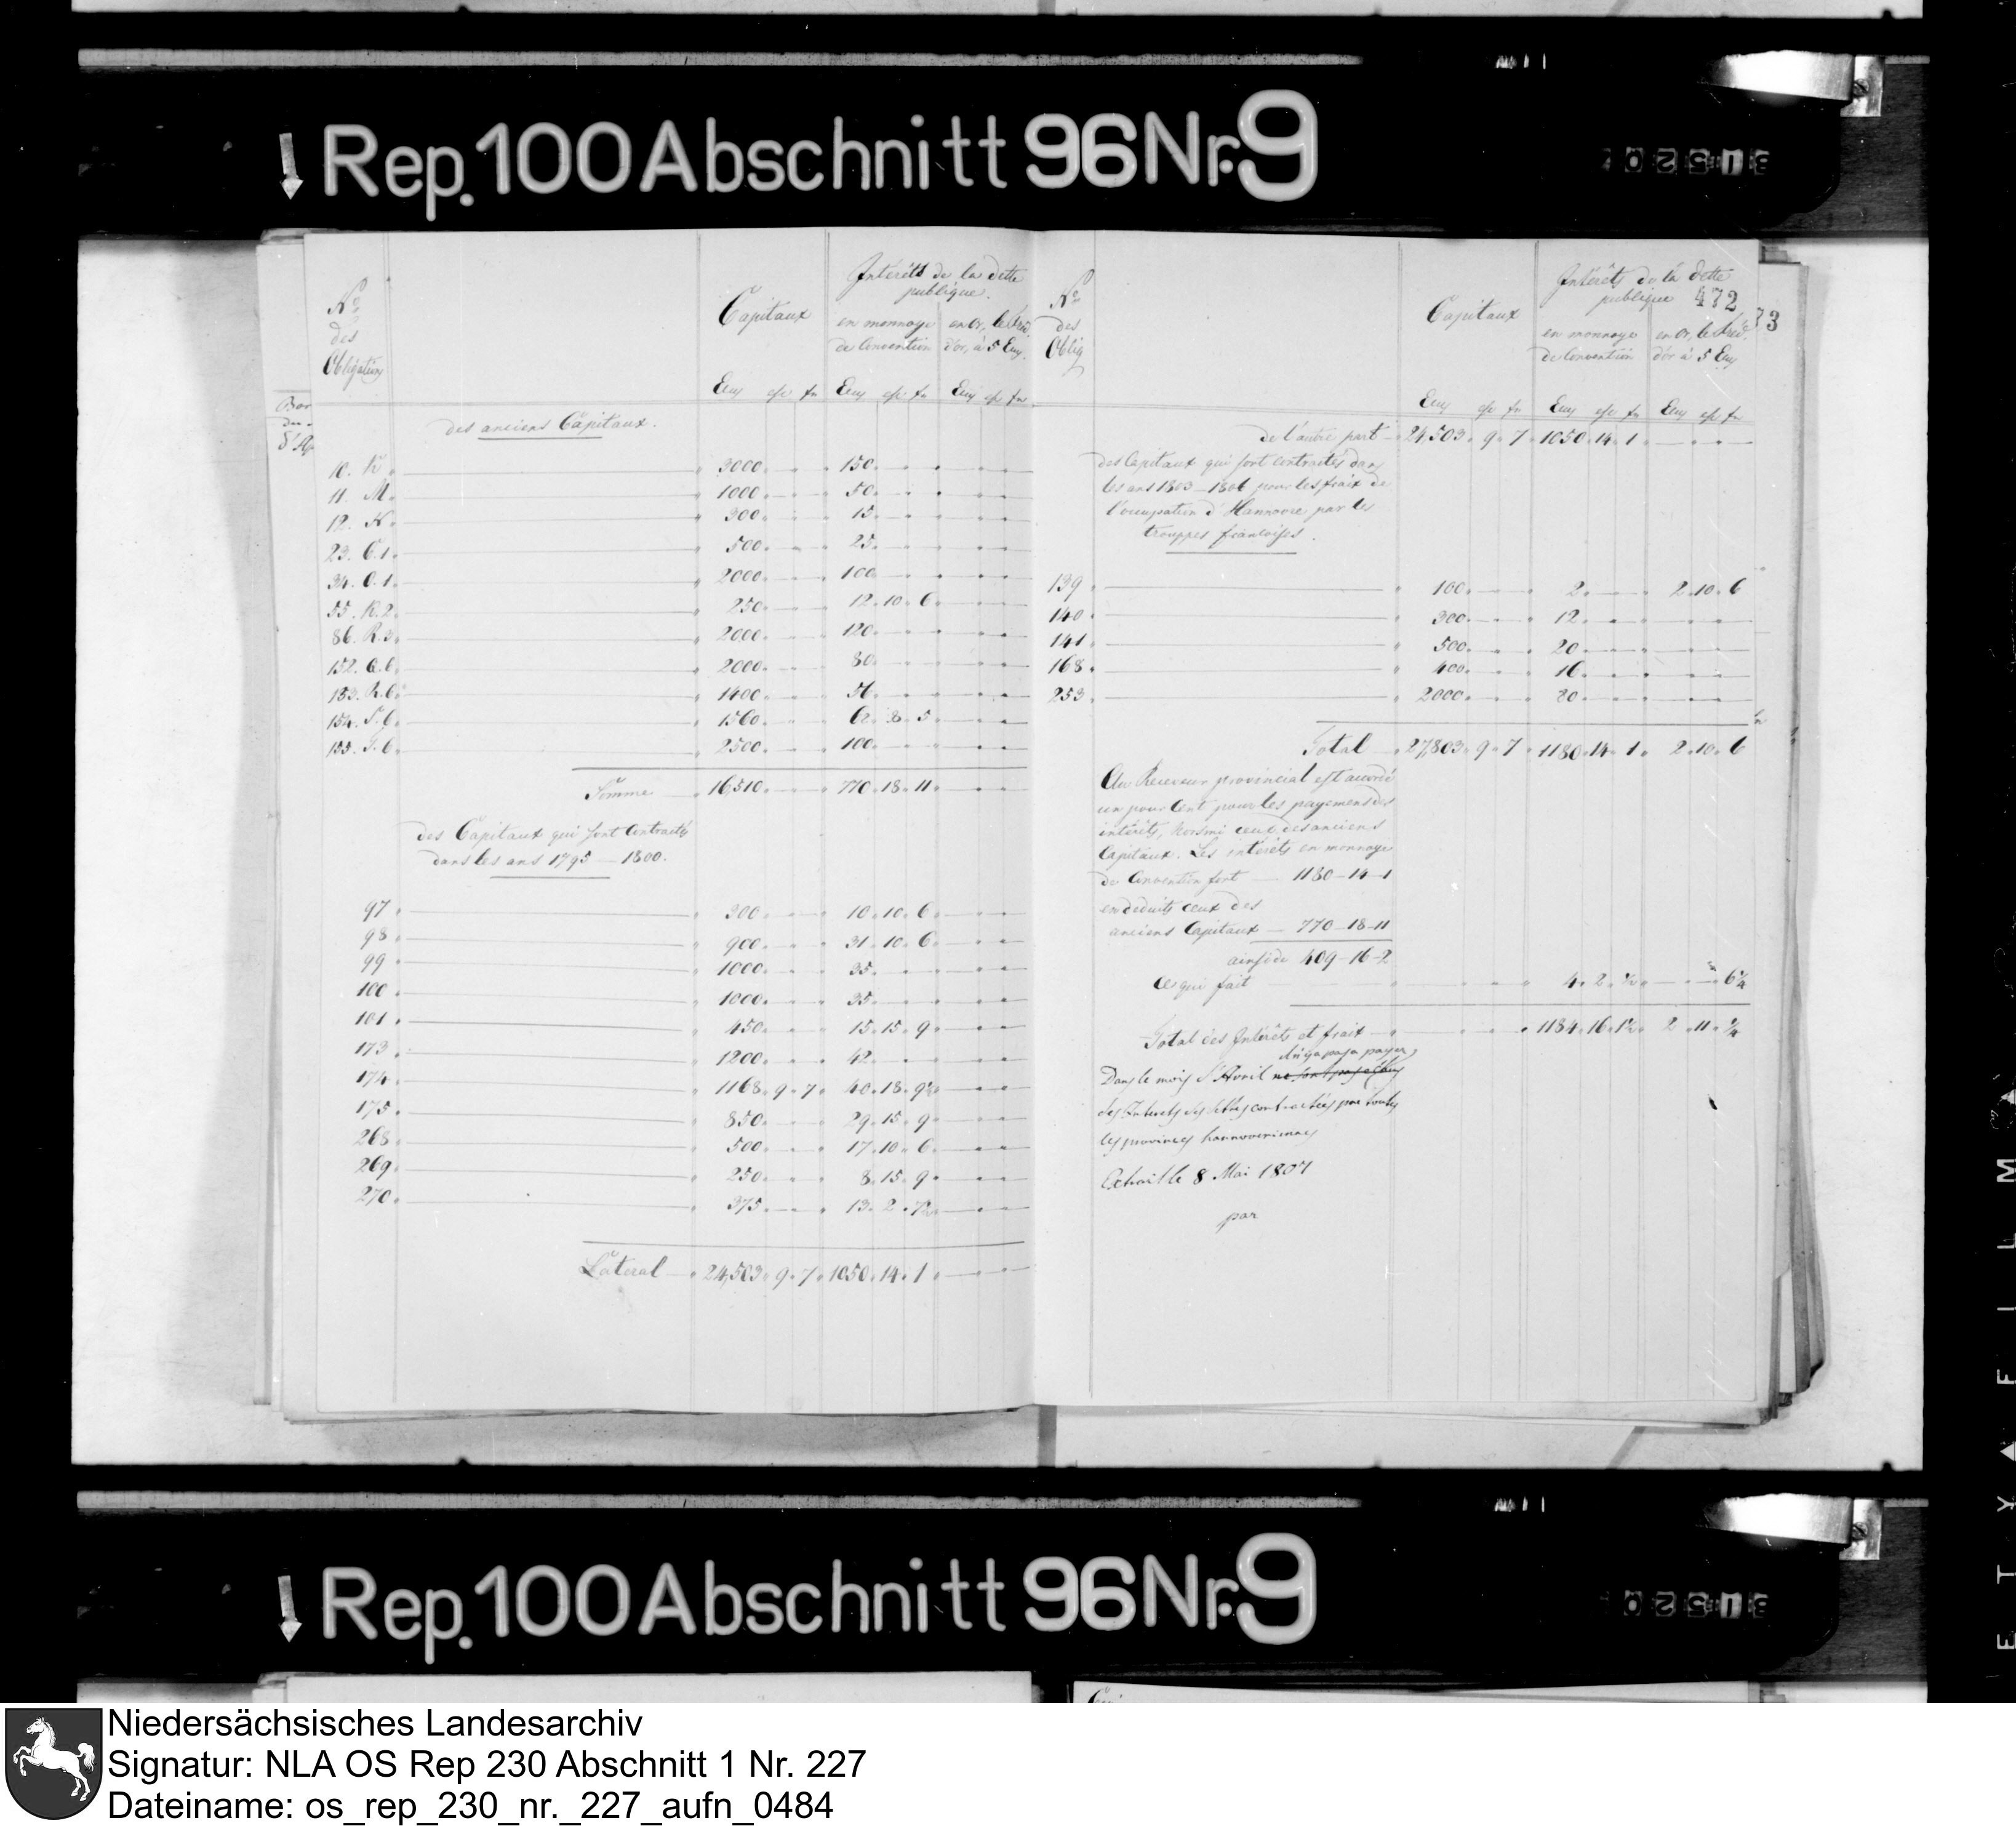 Rep. 100 Abschnitt 96 Nr. 9
No
des
Obligations
Capitaux
Intérêts de la dette
publique.
en monnoye
de Convention
en or, le Fréd.
d'or, à 5 Ecus.
des anciens Capitaux.
10. K. 3000. 150.
11. M. 1000. 50.
12. N. 300. 15.
23. C.1. 500. 25.
34. O.1. 2000. 100.
55. K.2. 250. 12. 10. 6.
86. R.3. 2000. 120.
152. Q.6. 2000. 80.
153. R.6. 1400. 56.
154. S.6. 1560. 62. 8. 5
155. T.6. 2500. 100.
Somme 16510. 770. 18. 11.
des Capitaux qui sont contractés
dans les ans 1795 — 1800.
97. 300. 10. 10. 6.
98. 900. 31. 10. 6.
99. 1000. 35.
100. 1000. 35.
101. 450. 15. 15. 9.
173. 1200. 42.
174. 1168. 9. 7. 40. 18. 9½
175. 850. 29. 15. 9.
268. 500. 17. 10. 6.
269. 250. 8. 15. 9.
270. 375. 13. 2. 7½
Lateral 24,503. 9. 7. 1050. 14. 1.
No
des
Oblig
Capitaux
Intérêts de la dette
publique 472
en monnoye
de Convention
en or, le Fréd.
d'or à 5 Ecus
3
de l'autre part 24,503. 9. 7. 1050. 14. 1.
des Capitaux qui sont contractés dans
les ans 1803 — 1806 pour les fraix de
l'occupation d'Hannovre par les
trouppes françoises.
139. 100. 2. 2. 10. 6
140. 300. 12.
141. 500. 20.
168. 400. 16.
253. 2000. 80.
Total 27,803. 9. 7. 1180. 14. 1. 2. 10. 6
Au Receveur provincial est accordé
un pour Cent pour les payemens des
intérêts, horsmi ceux des anciens
Capitaux. Les intérêts en monnoye
de Convention sont — 1180 – 14 – 1
en deduits ceux des
anciens Capitaux — 770 – 18 – 11
ainsi de 409 – 16 – 2
ce qui fait 4. 2. 6¼
Total des Intérêts et fraix 1184. 16. 2. 11.
il n'y a pas a payer
Dans le mois d'Avril ne sont pas
des Interets des dettes contractées par toutes
les provinces hannoveriennes
Extrait le 8 Mai 1807
par
Rep. 100 Abschnitt 96 Nr. 9
Niedersächsisches Landesarchiv
Signatur: NLA OS Rep 230 Abschnitt 1 Nr. 227
Dateiname: os_rep_230_nr._227_aufn_0484